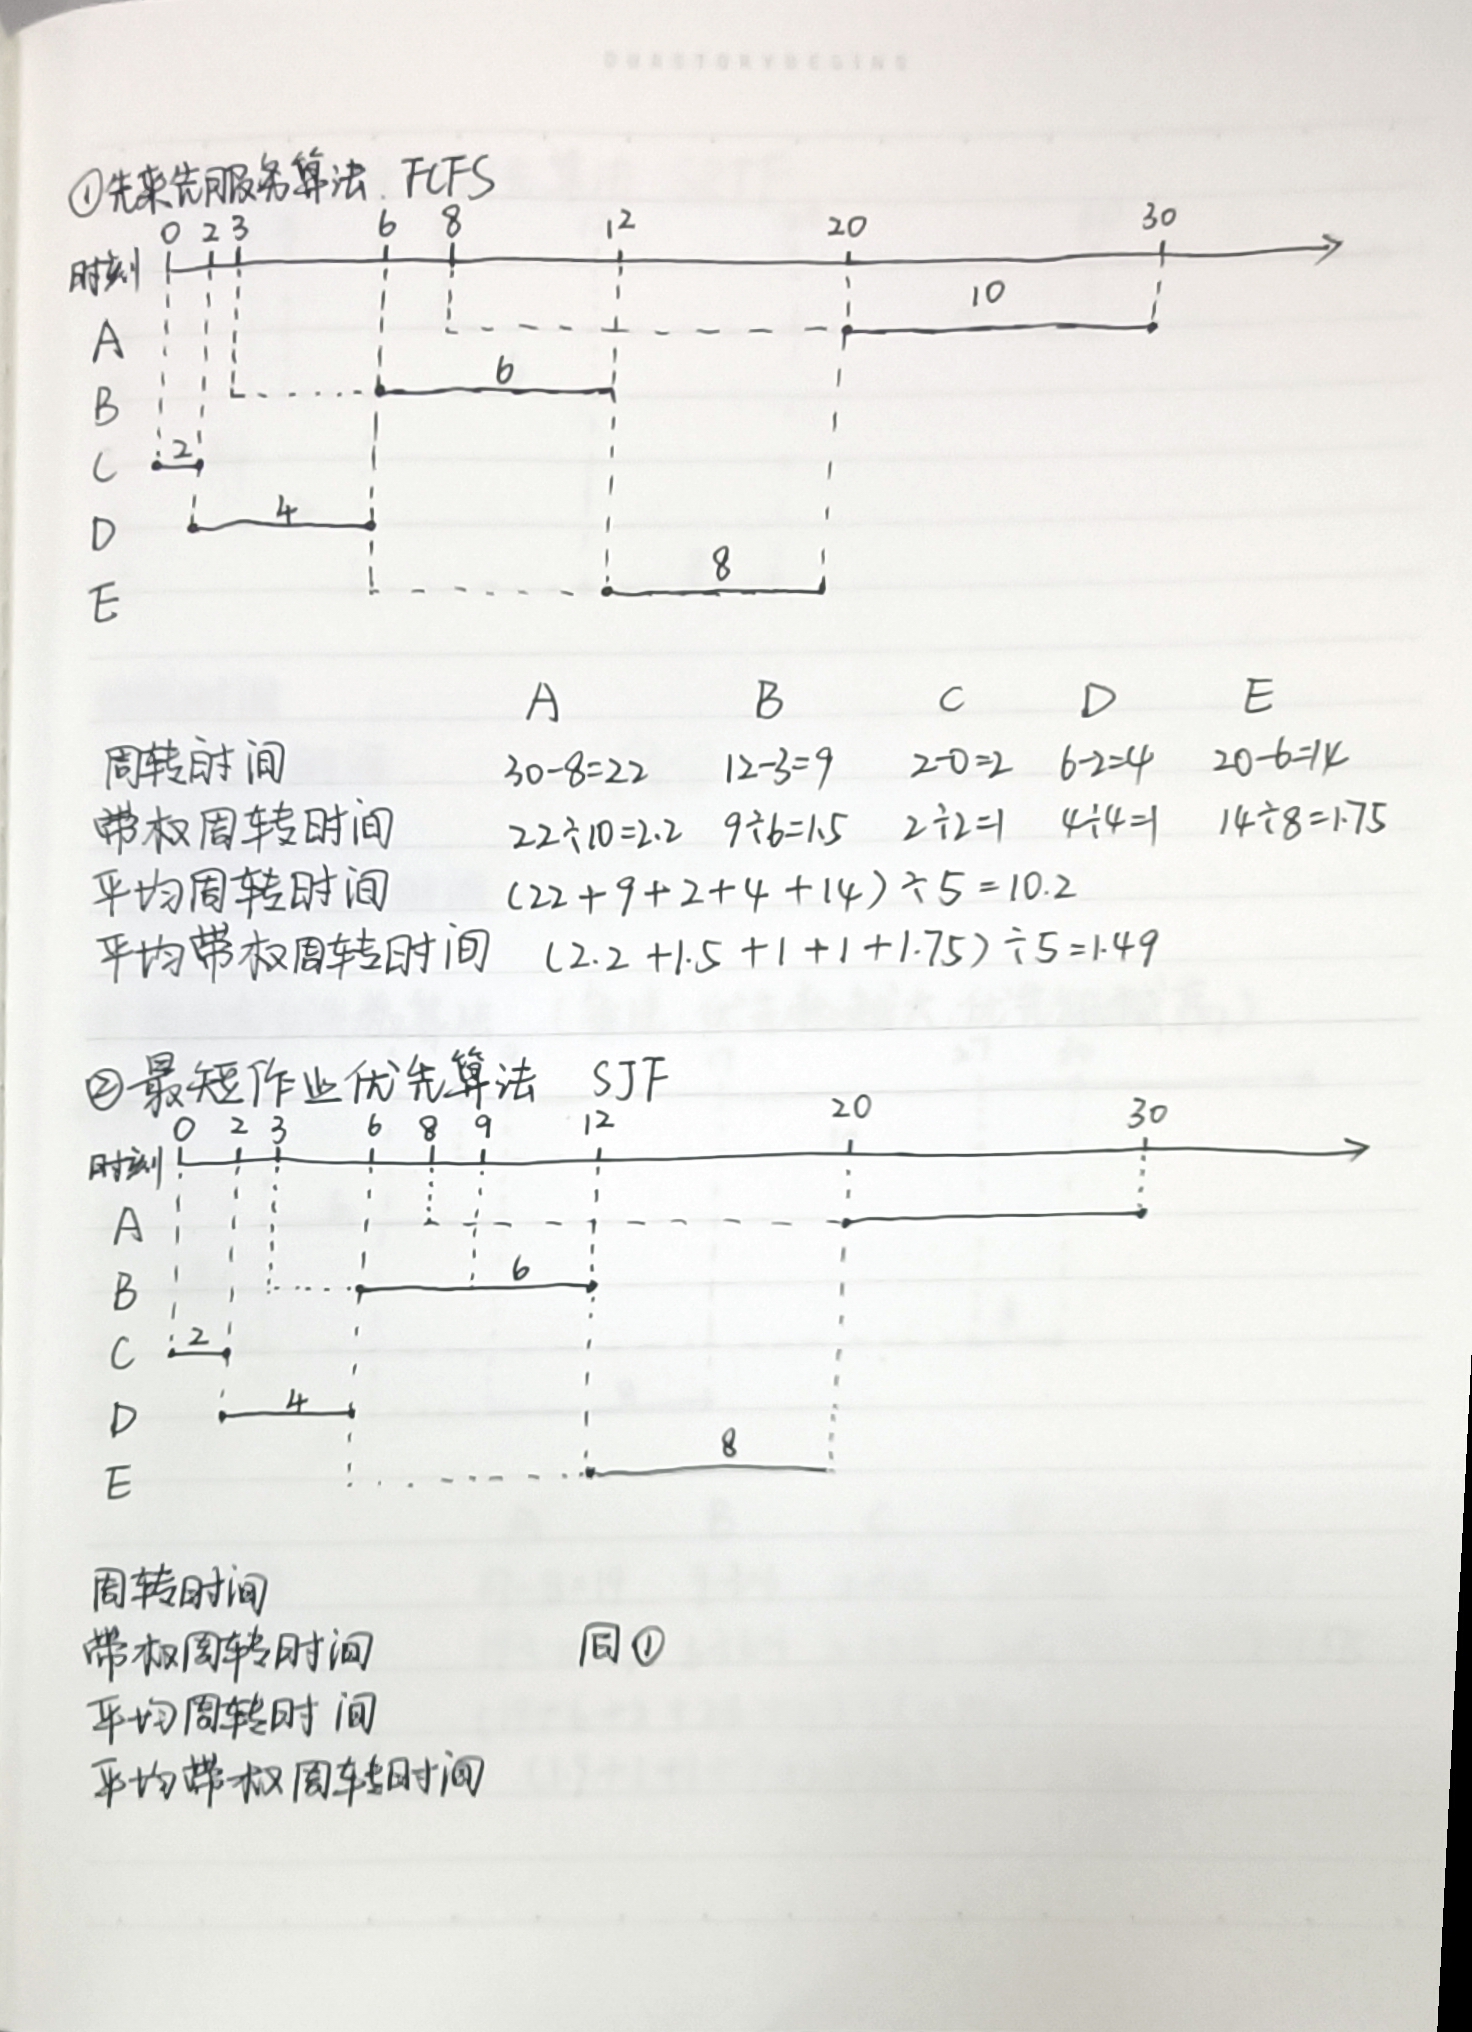 OURSTORYBEGINS
①先来先服务算法. FCFS
0 2 3 6 8 12 20 30
时刻
10
A
6
B
2
C
4
D
8
E
A B C D E
周转时间 30-8=22 12-3=9 2-0=2 6-2=4 20-6=14
带权周转时间 22÷10=2.2 9÷6=1.5 2÷2=1 4÷4=1 14÷8=1.75
平均周转时间 (22+9+2+4+14)÷5=10.2
平均带权周转时间 (2.2+1.5+1+1+1.75)÷5=1.49
②最短作业优先算法 SJF
0 2 3 6 8 9 12 20 30
时刻
A
6
B
2
C
4
D
8
E
周转时间
带权周转时间 同①
平均周转时间
平均带权周转时间